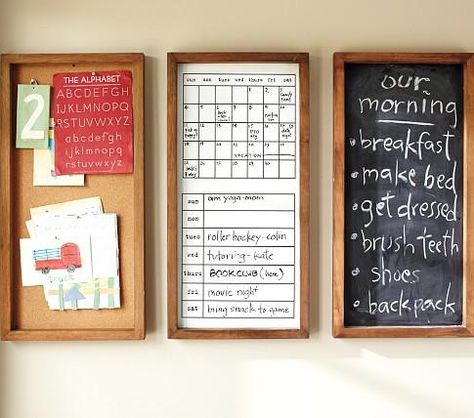 2
THE ALPHABET
ABCDEFG
HIJKLMNOP
QRSTUVWXYZ
abcdefgh
ijklmnopq
rstuvwxyz
SUN MON TUES WED THURS FRI SAT
VACATION
SUN am yoga-mom
MON
TUES roller hockey-colin
WED tutoring-kate
THURS BOOKCLUB (here)
FRI movie night
SAT bring snack to game
our
morning
breakfast
make bed
get dressed
brush teeth
shoes
backpack